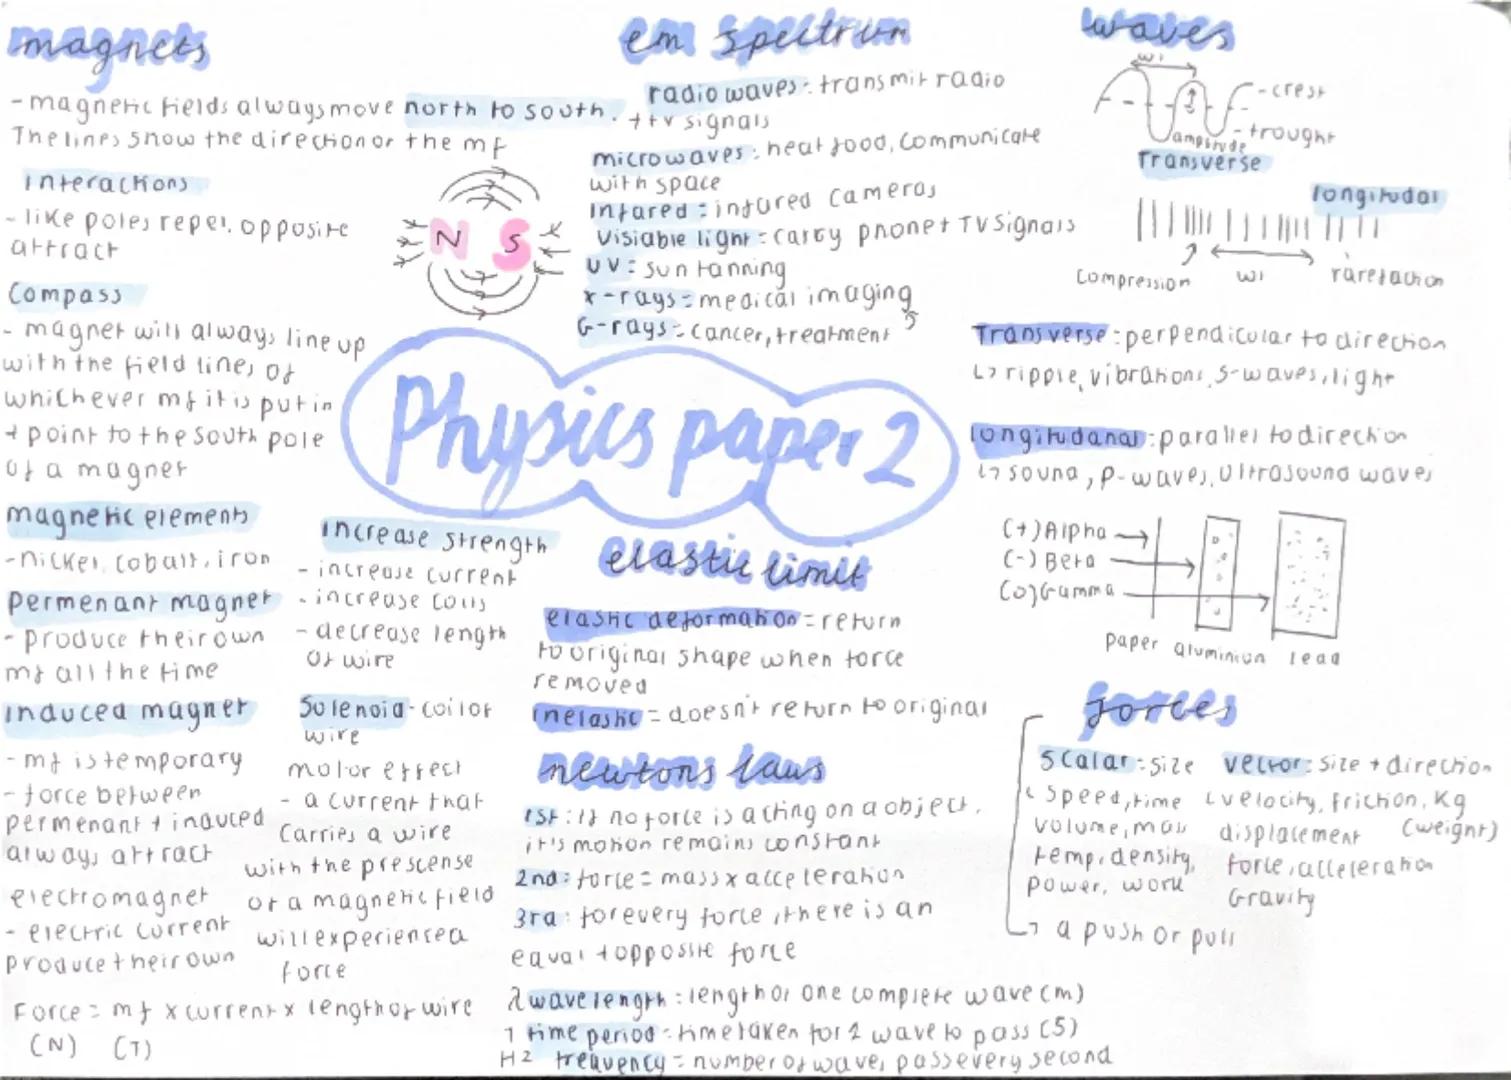 magnets
- magnetic fields always move north to south.
The lines show the direction of the mf
interactions
- like poles repel, opposite
attract
N S
Compass
- magnet will always line up
with the field lines of
whichever mf it is put in
+ point to the south pole
of a magnet
magnetic elements
- nickel, cobalt, iron
permenant magnet
- produce their own
mf all the time
induced magnet
- mf is temporary
- force between
permenant + induced
always attract
electromagnet
- electric current
produce their own
increase strength
- increase current
- increase coils
- decrease length
of wire
Solenoid - coil of
wire
motor effect
- a current that
carries a wire
with the prescense
of a magnetic field
will experience a
force
Force = mf x current x length of wire
(N) (T)
em spectrum
radio waves: transmit radio
+ tv signals
microwaves: heat food, communicate
with space
infared: infared cameras
Visiable light = carry phone + TV signals
UV: sun tanning
x-rays = medical imaging
G-rays = cancer, treatment
Physics paper 2
elastic limit
elastic deformation = return
to original shape when force
removed
inelastic = doesn't return to original
newtons laws
1st: if no force is acting on a object,
it's motion remains constant
2nd: force = mass x acceleration
3rd: for every force, there is an
equal + opposite force
λ wavelength: length of one complete wave (m)
T time period = time taken for 1 wave to pass (S)
HZ frequency = number of waves pass every second
waves
wl
- crest
- trought
amplitude
Transverse
longitudal
compression wl rarefaction
Transverse: perpendicular to direction
↳ ripple, vibrations, s-waves, light
longitudanal: parallel to direction
↳ sound, p-waves, ultrasound waves
(+) Alpha
(-) Beta
(0) Gamma
paper aluminion lead
forces
Scalar: size
↳ speed, time
volume, mass
temp, density,
power, work
vector: size + direction
↳ velocity, friction, Kg
displacement (weight)
force, acceleration
Gravity
↳ a push or pull